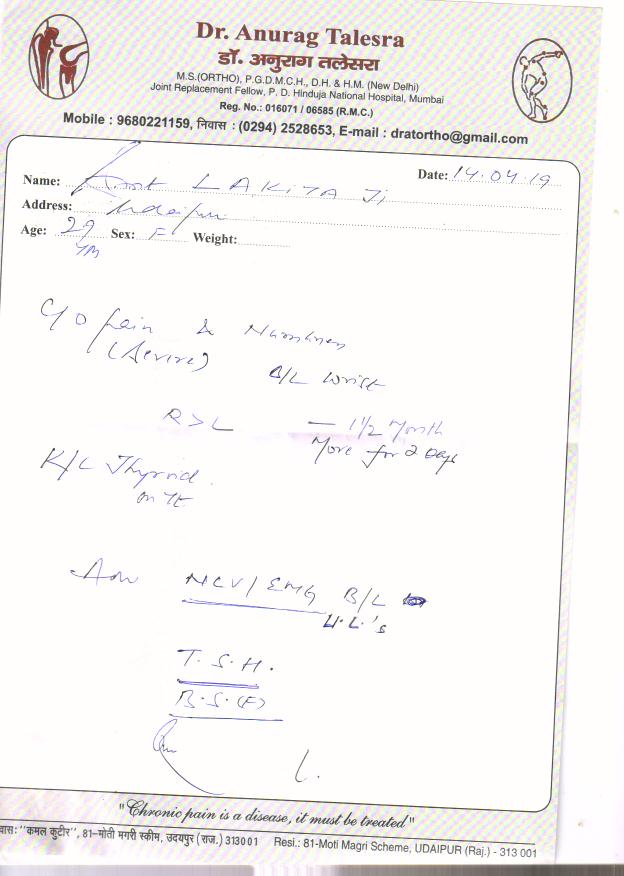 Dr. Anurag Talesra
डॉ. अनुराग तलेसरा
M.S.(ORTHO), P.G.D.M.C.H., D.H. & H.M. (New Delhi)
Joint Replacement Fellow, P. D. Hinduja National Hospital, Mumbai
Reg. No.: 016071 / 06585 (R.M.C.)
Mobile : 9680221159, निवास : (0294) 2528653, E-mail : dratortho@gmail.com
Date: 14.04.19
Name: LAKITA Ji
Address: Udaipur
Age: 29 Sex: F Weight:
C/O Pain & Numbness
(Severe) B/L Wrist
R>L — 1 1/2 Month
More for 2 Days
K/C Thyroid
on Tt.
Adv NCV/EMG B/L
U.L.'s
T.S.H.
B.S.(F)
"Chronic pain is a disease, it must be treated"
वास: "कमल कुटीर", 81-मोती मगरी स्कीम, उदयपुर (राज.) 313001 Resi.: 81-Moti Magri Scheme, UDAIPUR (Raj.) - 313 001